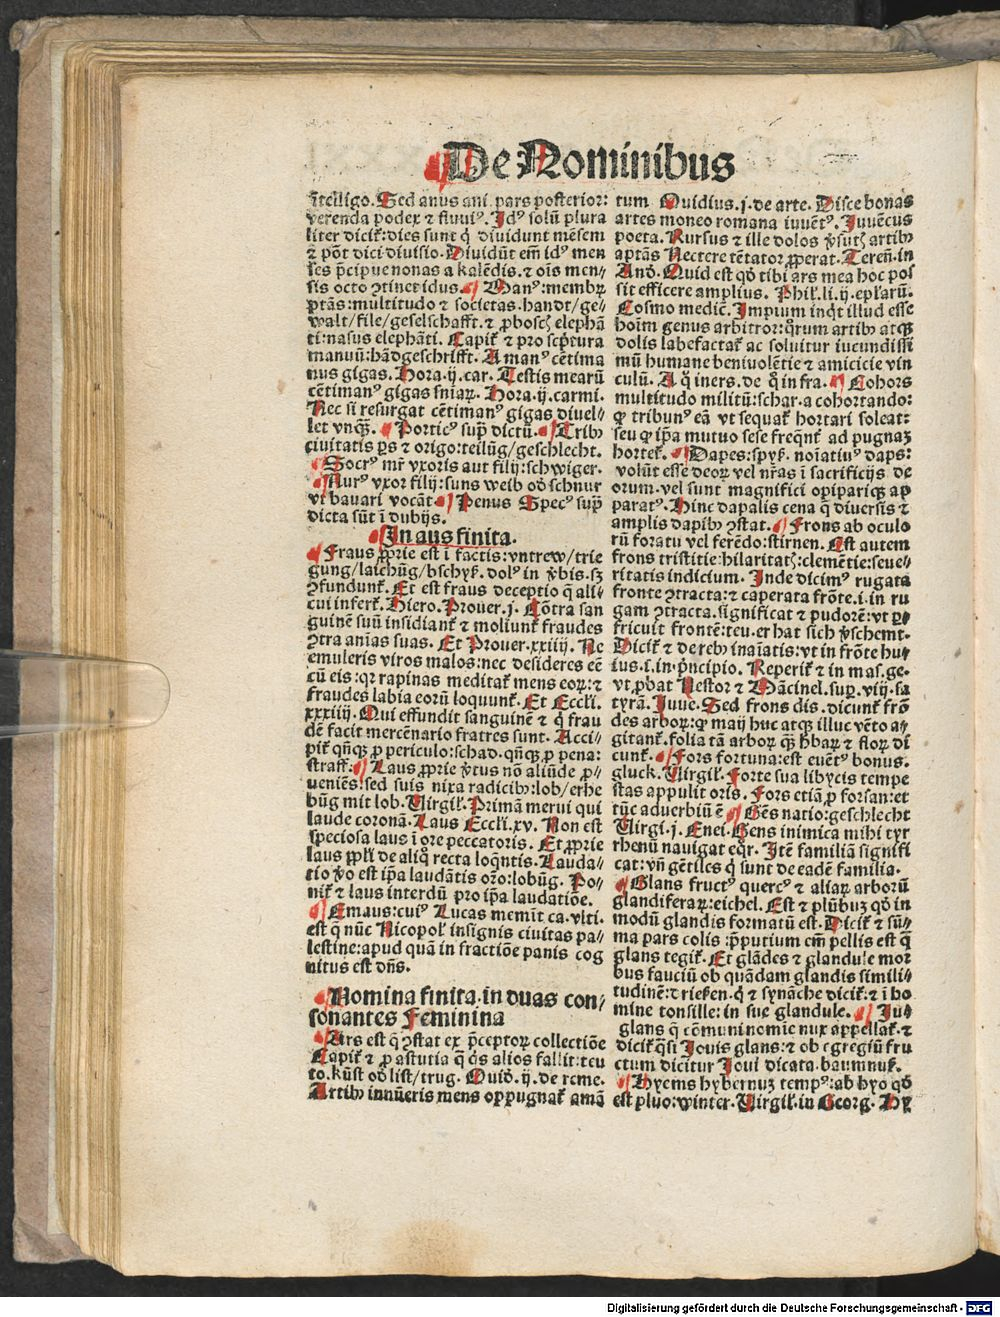 De Nominibus
ītelligo. Sed anus ani pars posterior:
verenda podex ⁊ fluuiꝰ. Idꝰ solū plura
liter dicit̄: dies sunt q̇ diuidunt mēsem
⁊ pōt dici diuisio. Diuidūt em̄ idꝰ men
ses p̄cipue nonas a kalēdis. ⁊ oīs men-
sis octo ꝯtinet idus. Manꝰ: membꝝ
ꝑtās: multitudo ⁊ societas. handt/ ge-
walt/ file/ geselschafft. ⁊ ꝓboscꝫ elephā
ti: nasus elephāti. Capit̄ ⁊ pro scp̄tura
manuū: hādgeschrifft. A manꝰ cētima
nus gigas. Hora. ij. car. Testis mearū
cētimanꝰ gigas sniaꝝ. Hora. ij. carmi.
Nec si resurgat cētimanꝰ gigas diuel-
let vnqꝫ. Porticꝰ sup̄ dictū. Tribꝰ
ciuitatis ꝑs ⁊ origo: teilūg/ geschlecht.
Socrꝰ mr̄ vxoris aut filij: schwiger.
Nurꝰ vxor filij: suns weib od̓ schnur
vt bauari vocāt. Penus Specꝰ sup̄
dicta sūt ī dubijs.
In aus finita.
Fraus ꝓprie est ī factis: vntrew/ trie
gung/ laichūg/ bschyß. dolꝰ in v̓bis. sꝫ
ꝯfundunt̄. Et est fraus deceptio q̄ ali-
cui infert̄. Hiero. Prouer. j. Cōtra san
guinē suū insidiant̄ ⁊ moliunt̄ fraudes
ꝯtra aīas suas. Et Prouer. xxiiij. Ne
emuleris viros malos: nec desideres eē
cū eis: qꝛ rapinas meditat̄ mens eoꝝ: ⁊
fraudes labia eorū loquunt̄. Et Eccli.
xxxiiij. Qui effundit sanguinē ⁊ q̇ frau
dē facit mercēnario fratres sunt. Acci-
pit̄ qn̄qꝫ ꝓ periculo: schad. qn̄qꝫ ꝓ pena:
straff. Laus ꝓprie v̓tus nō aliūde ꝓ-
ueniēs: sed suis nixa radicibꝰ: lob/ erhe
būg mit lob. Virgil̄. Primā merui qui
laude coronā. Laus Eccli. xv. Non est
speciosa laus ī ore peccatoris. Et ꝓprie
laus ꝓpl̄i de aliq̊ recta loq̄ntis. Lauda-
tio v̓o est ip̄a laudātis or̄o: lobūg. Po-
nit̄ ⁊ laus interdū pro ip̄a laudatiōe.
Emaus: cuiꝰ Lucas memit ca. vlti.
est q̄ nūc Nicopol̄ insignis ciuitas pa-
lestine: apud quā in fractiōe panis cog
nitus est dn̄s.
Nomina finita in duas con-
sonantes Feminina
Ars est q̄ ꝯstat ex p̄ceptoꝝ collectiōe
Capit̄ ⁊ ꝓ astutia q̄ q̇s alios fallit: teu
to. kūst od̓ list/ trug. Ouid̓. ij. de reme.
Artibꝰ innūeris mens oppugnat̄ amā
tum Ouidius. j. de arte. Disce bonas
artes moneo romana iuuētꝰ. Juuēcus
poeta. Rursus ⁊ ille dolos v̓sutꝫ artibꝰ
aptās Nectere tētator ꝓperat. Teren̄. in
And̓. Quid est qd̓ tibi ars mea hoc pos
sit efficere amplius. Phil̄. li. ij. epl̄arū.
Cosmo medic̄. Impium inqt̓ illud esse
hoīm genus arbitror: q̊rum artibꝰ atqꝫ
dolis labefactat̄ ac soluitur iucundissi
mū humane beniuolētie ⁊ amicicie vin
culū. A q̊ iners. de q̊ in fra. Cohors
multitudo militū: schar. a cohortando:
ꝙ tribunꝰ eā vt sequat̄ hortari soleat:
seu ꝙ ip̄a mutuo sese freqn̄t̄ ad pugnaꝫ
hortet̄. Dapes: spyß. noīatiuꝰ daps:
volūt esse deoꝝ vel nr̄as ī sacrificijs de
orum. vel sunt magnifici opipariqꝫ ap
paratꝰ. Hinc dapalis cena q̄ diuersis ⁊
amplis dapibꝰ ꝯstat. Frons ab oculo
rū foratu vel ferēdo: stirnen. Est autem
frons tristitie: hilaritatꝫ: clemētie: seue-
ritatis indicium. Inde dicimꝰ rugata
fronte ꝯtracta: ⁊ caperata frōte. i. in ru
gam ꝯtracta. significat ⁊ pudorē: vt ꝑ
fricuit frontē: teu. er hat sich v̓schemt.
Dicit̄ ⁊ de rebꝰ inaīatis: vt in frōte hu-
ius. i. in p̄ncipio. Reperit̄ ⁊ in mas. ge-
vt ꝓbat Nestor ⁊ Mācinel. sup̄. viij. sa
tyrā. Juue. Sed frons dis. dicunt̄ frō
des arboꝝ: ꝙ maij huc atqꝫ illuc vēto a-
gitant̄. folia tā arboꝝ qꝫ hb̓aꝝ ⁊ floꝝ di
cunt̄. Fors fortuna: est euētꝰ bonus.
gluck. Virgil̄. Forte sua libycis tempe
stas appulit oris. Fors etiā ꝓ forsan: et
tūc aduerbiū ē. Gēs natio: geschlecht
Virgi. j. Enei. Gens inimica mihi tyr
rhenū nauigat eqr̄. Itē familiā signifi
cat: vn̄ gētiles q̇ sunt de eadē familia.
Glans fructꝰ quercꝰ ⁊ aliaꝝ arborū
glandiferaꝝ: eichel. Est ⁊ plūbuꝫ qd̓ in
modū glandis formatū est. Dicit̄ ⁊ sū-
ma pars colis: p̄putium em̄ pellis est q̄
glans tegit̄. Et glādes ⁊ glandule mor
bus fauciū ob quādam glandis simili-
tudinē: trießen. q̇ ⁊ synāche dicit̄: ⁊ ī ho
mine tonsille: in sue glandule. Ju-
glans q̄ cōmuni nomine nux appellat̄. ⁊
dicit̄ qͣsi Jouis glans: ⁊ ob egregiū fru
ctum dicitur Joui dicata. baumnuß.
Hyems hybernuꝫ tempꝰ: ab hyo qd̓
est pluo: winter. Virgil̄. in Georg. Hy
Digitalisierung gefördert durch die Deutsche Forschungsgemeinschaft - DFG